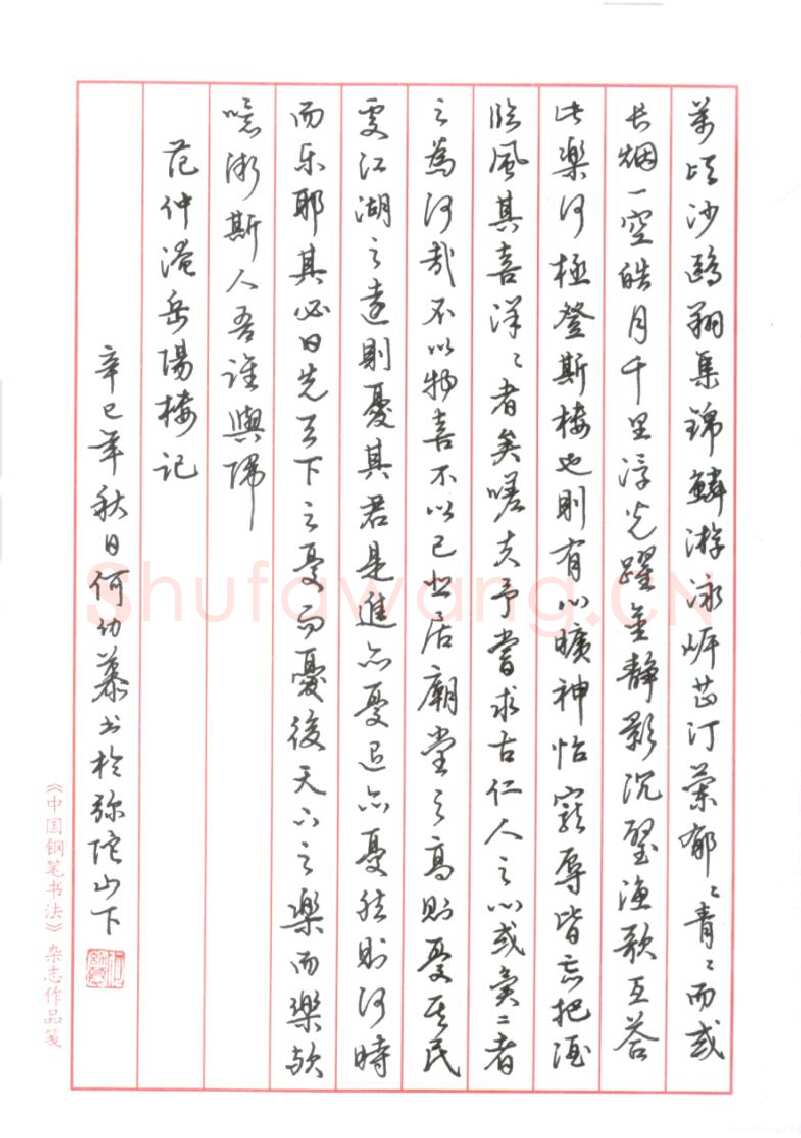 萬頃沙鷗翔集錦鱗游泳岸芷汀蘭郁〻青〻而或
长烟一空皓月千里浮光躍金静影沉璧渔歌互答
此樂何極登斯楼也則有心曠神怡寵辱皆忘把酒
臨風其喜洋〻者矣嗟夫予嘗求古仁人之心或異二者
之為何哉不以物喜不以己悲居廟堂之高則憂其民
處江湖之遠則憂其君是進亦憂退亦憂然則何時
而乐耶其必曰先天下之憂而憂後天下之樂而樂歟
噫微斯人吾谁與歸
范仲淹岳陽楼记
辛巳年秋日何幼慕书於弥陀山下
《中国钢笔书法》杂志作品笺
Shufawang.CN